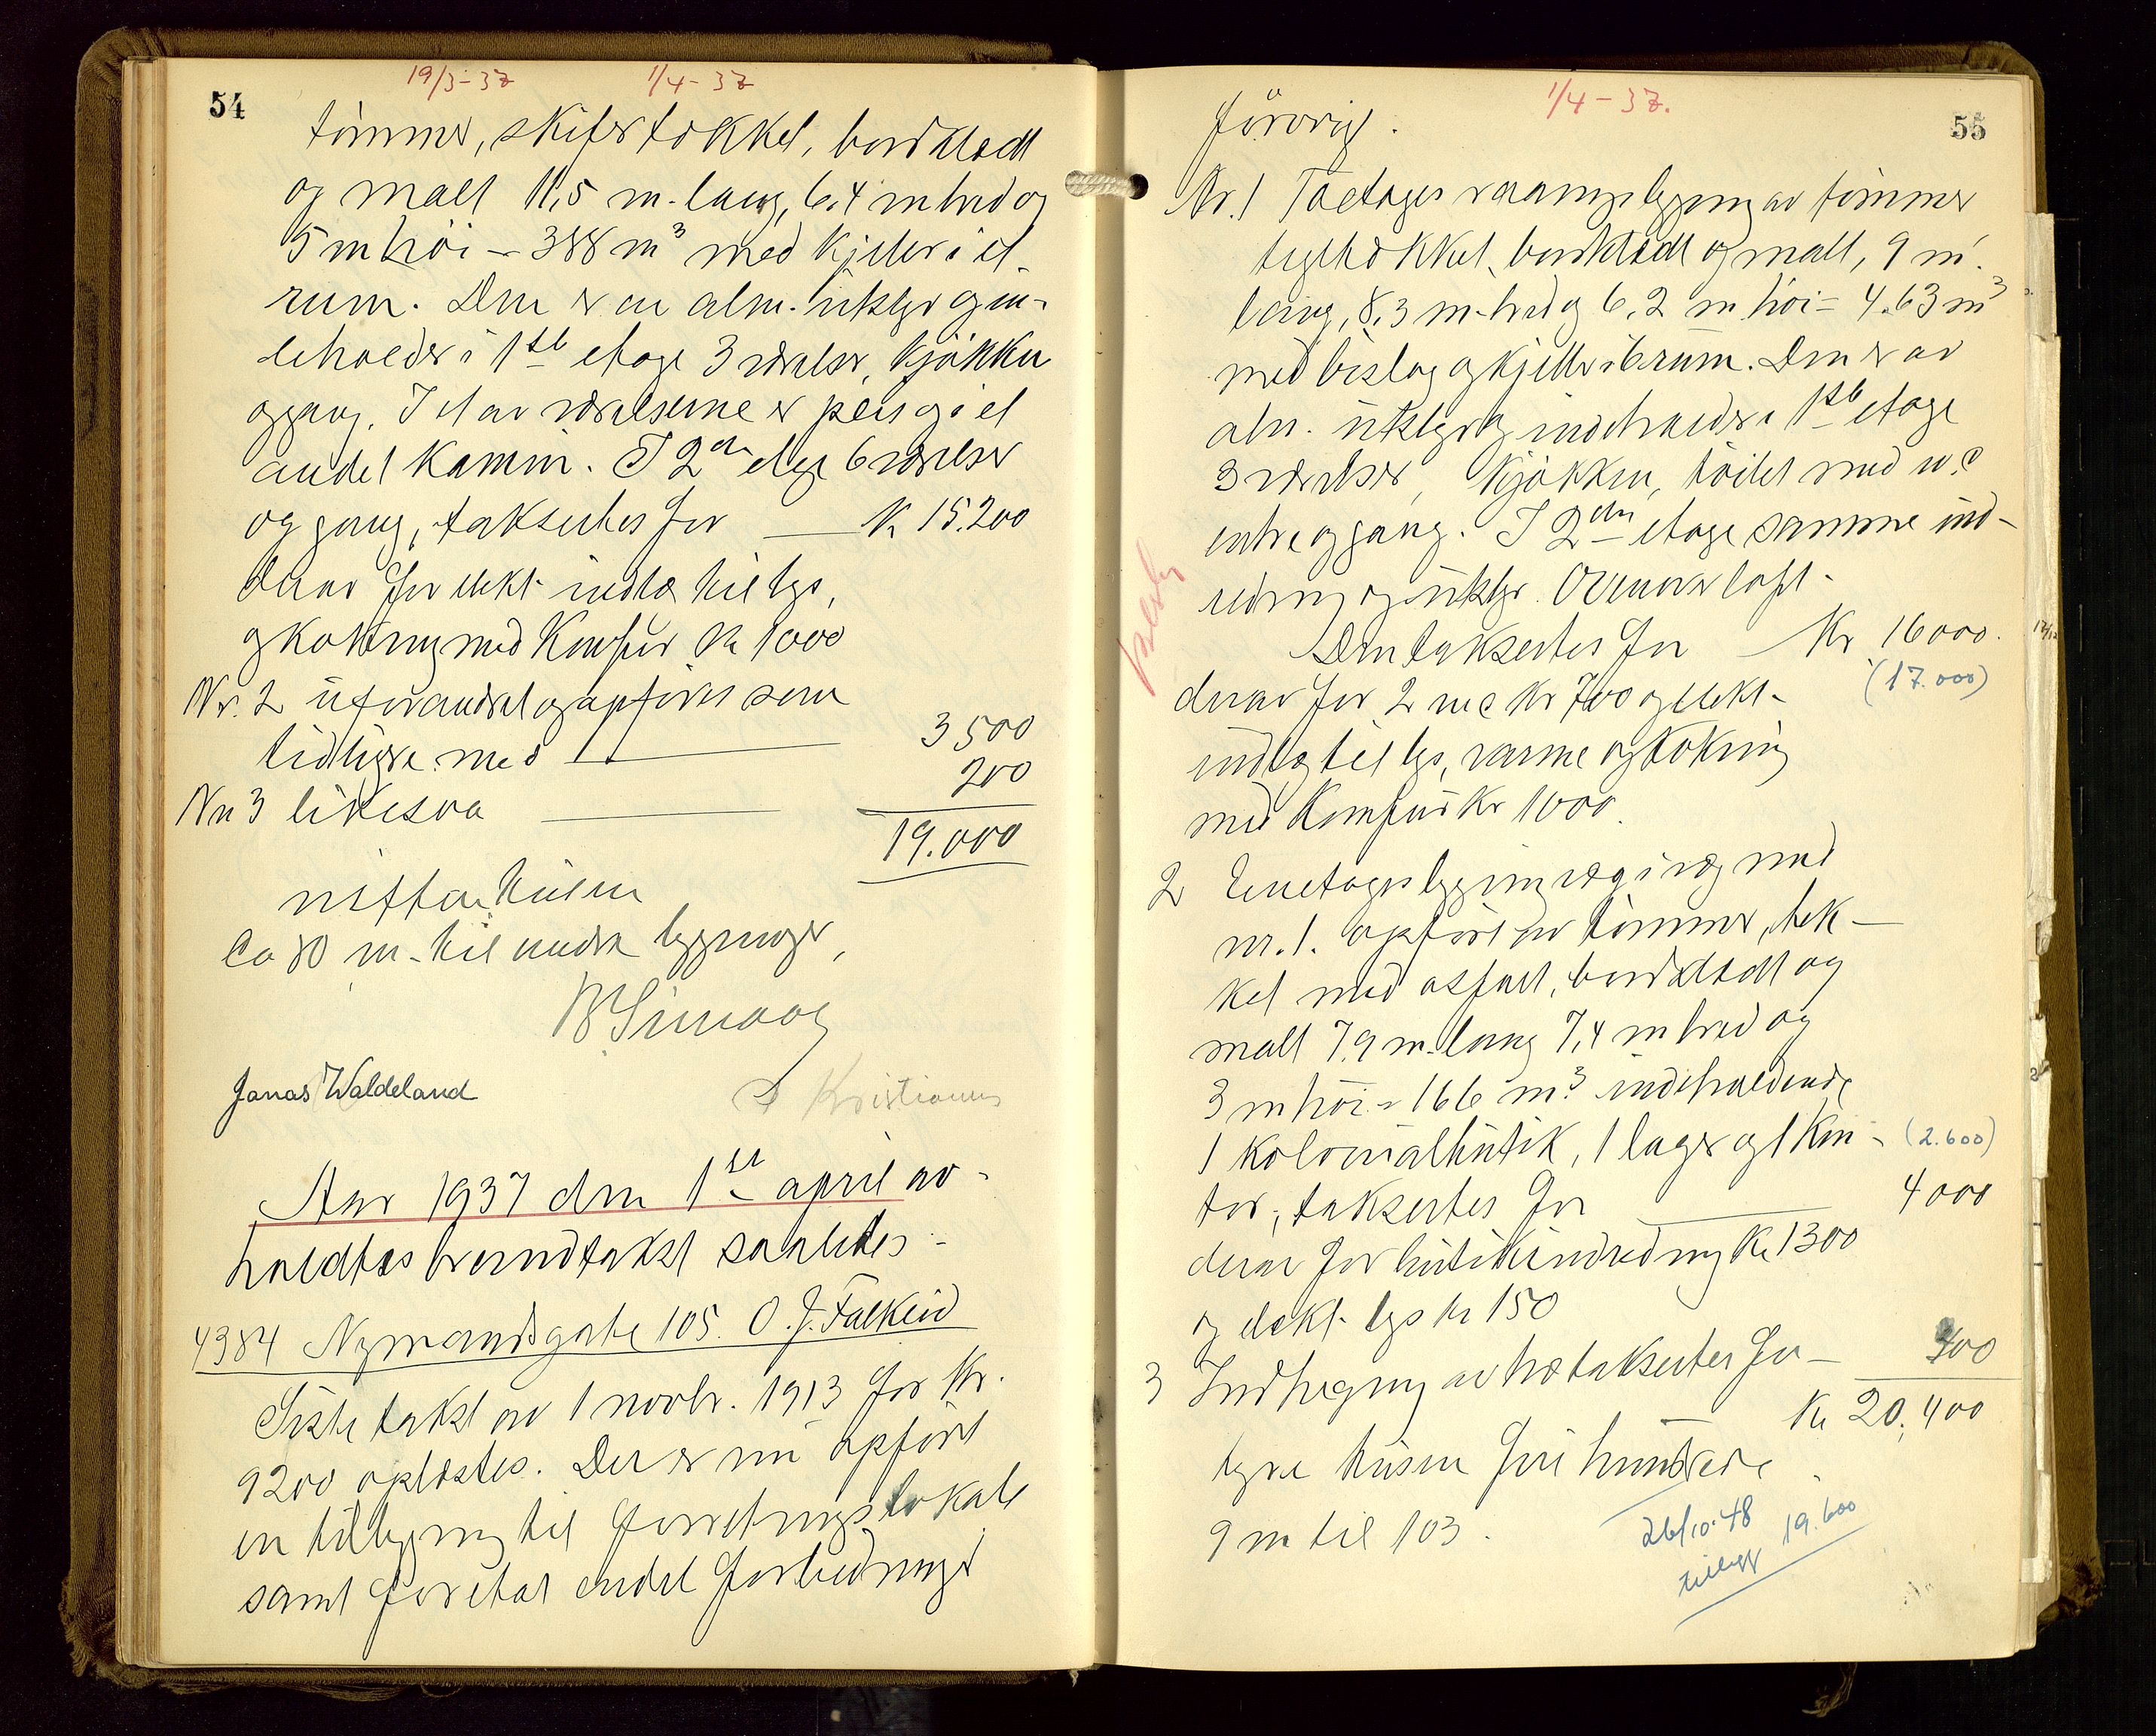 54
19/3-37 1/4-37
tömmer, skifertækket, bordklædt
og malt 11,5 m. lang, 6,4 m bred og
5 m höi = 388 m³ med kjeller i et
rum. Den er av alm. utstyr og in-
deholder i 1ste etage 3 værelser, kjökken
og gang. I et av værelserne er peis og i et
andet kamin. I 2den etage 6 værelser
og gang, takseertes for — Kr 15.200
derav for elekt. indlæg til lys,
og kokning med komfur Kr 1000
Nr. 2 uforandret og opföres som
tidligere med — 3500
Nr 3 likesaa — 200
19.000
nitten tusen
Ca 80 m. til andre bygninger,
Jonas Waldeland
Kristiansen
Aar 1937 den 1ste april av-
holdtes brandtakst saaledes:
4384 Nymandsgate 105. O. J. Falkeid
Siste takst av 1 novbr. 1913 for Kr.
9200 oplæstes. Der er nu opfört
en tilbygning til forretningslokale
samt foretat endel forbedringer
1/4-37.
55
forövrig.
Nr. 1 Toetages vaaningsbygning av tömmer
teglhækket, bordklædt og malt, 9 m.
lang, 8,3 m. bred og 6,2 m höi = 4.63 m³
med bislag og kjeller i 6 rum. Den er av
alm. utstyr og indeholder i 1ste etage
3 værelser, kjökken, toilet med w.c
entre og gang. I 2den etage samme ind-
redning og utstyr. Ovenover loft.
Den takseertes for — Kr 16000.
(17.000)
derav for 2 wc kr 700 og elekt.
indlæg til lys, varme og kokning
med komfur Kr 1000.
2 Enetages bygning væg i væg med
nr. 1. opfört av tömmer, tæk-
ket med asfalt, bordklædt og
malt 7,9 m. lang 7,4 m bred og
3 m höi = 166 m³ indeholdende
1 kolonialbutik, 1 lager og 1 kon- (2.600)
tor, takseertes for — 4000
derav for butikindredning Kr 1300
og elekt. lys kr 150
3 Indhegning av træ takseertes for — 400
Kr 20,400
tyve tusen fire hundrede
9 m til 103.
26/10-48
tillegg 19.600